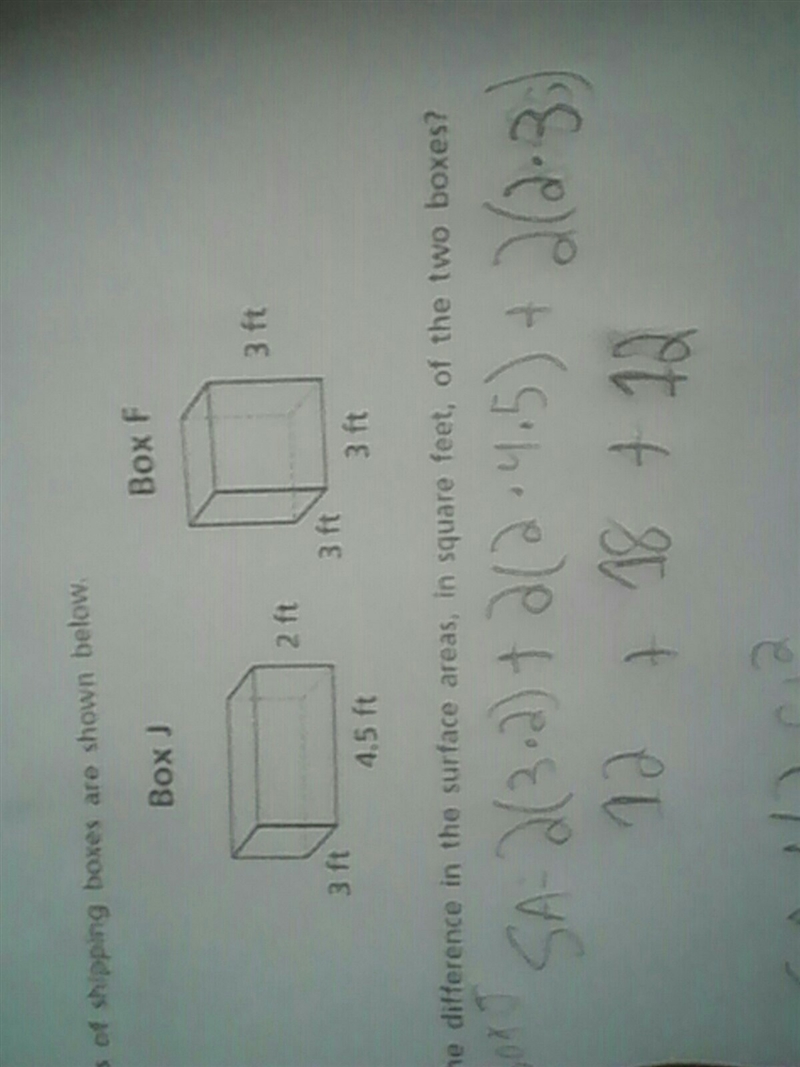 of shipping boxes are shown below.
Box J
Box F
3 ft
4.5 ft
2 ft
3 ft
3 ft
3 ft
difference in the surface areas, in square feet, of the two boxes?
SA- 2(3.2) + 2(2.4.5) + 2(2.3)
12 + 18 + 12